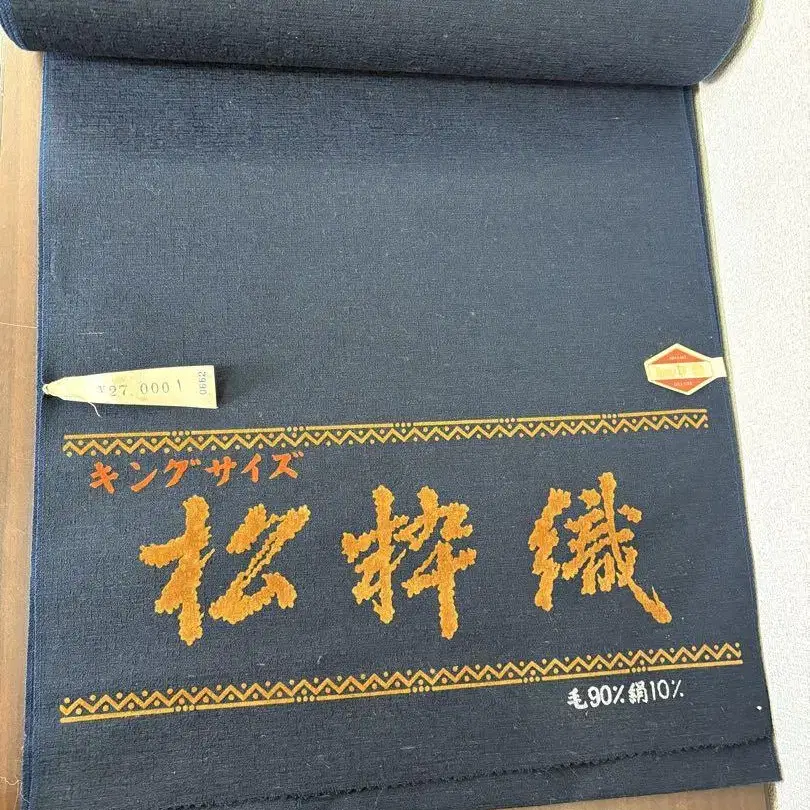 ¥27,000
0662
キングサイズ
松粋織
毛90%絹10%